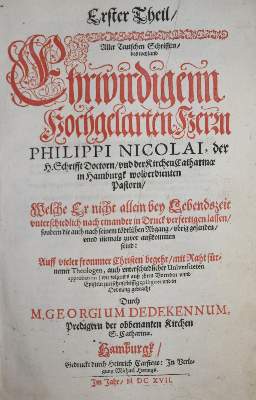 Erster Theil/
Aller Teutschen Schrifften/
des weyland
Ehrwürdigenn
Hochgelarten Herrn
PHILIPPI NICOLAI, der
H. Schrifft Doctorn/ vnd der Kirchen Catharinæ
in Hamburgk wolverdienten
Pastorn/
Welche Er nicht allein bey Lebendszeit
vnterschiedlich nach einander in Druck verfertigen lassen/
sondern die auch nach seinem tödtlichen Abgang/ vbrig gefunden/
vnnd niemals zuvor außkommen
seind:
Auff vieler frommer Christen begehr/ mit Raht für-
nemer Theologen, auch vnterschiedlicher Universiteten
approbation/
Ordnung gebracht
Durch
M. GEORGIUM DEDEKENNUM,
Predigern der obbenanten Kirchen
S. Catharinæ.
Hamburgk/
Gedruckt durch Heinrich Carstens: In Verle-
gung Michael Herings.
Im Jahr/ M DC XVII.